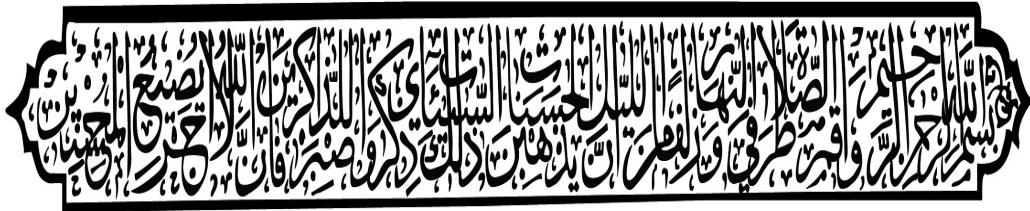 بسم الله الرحمن الرحيم وأقم الصلاة طرفي النهار وزلفا من الليل إن الحسنات يذهبن السيئات ذلك ذكرى للذاكرين واصبر فإن الله لا يضيع أجر المحسنين